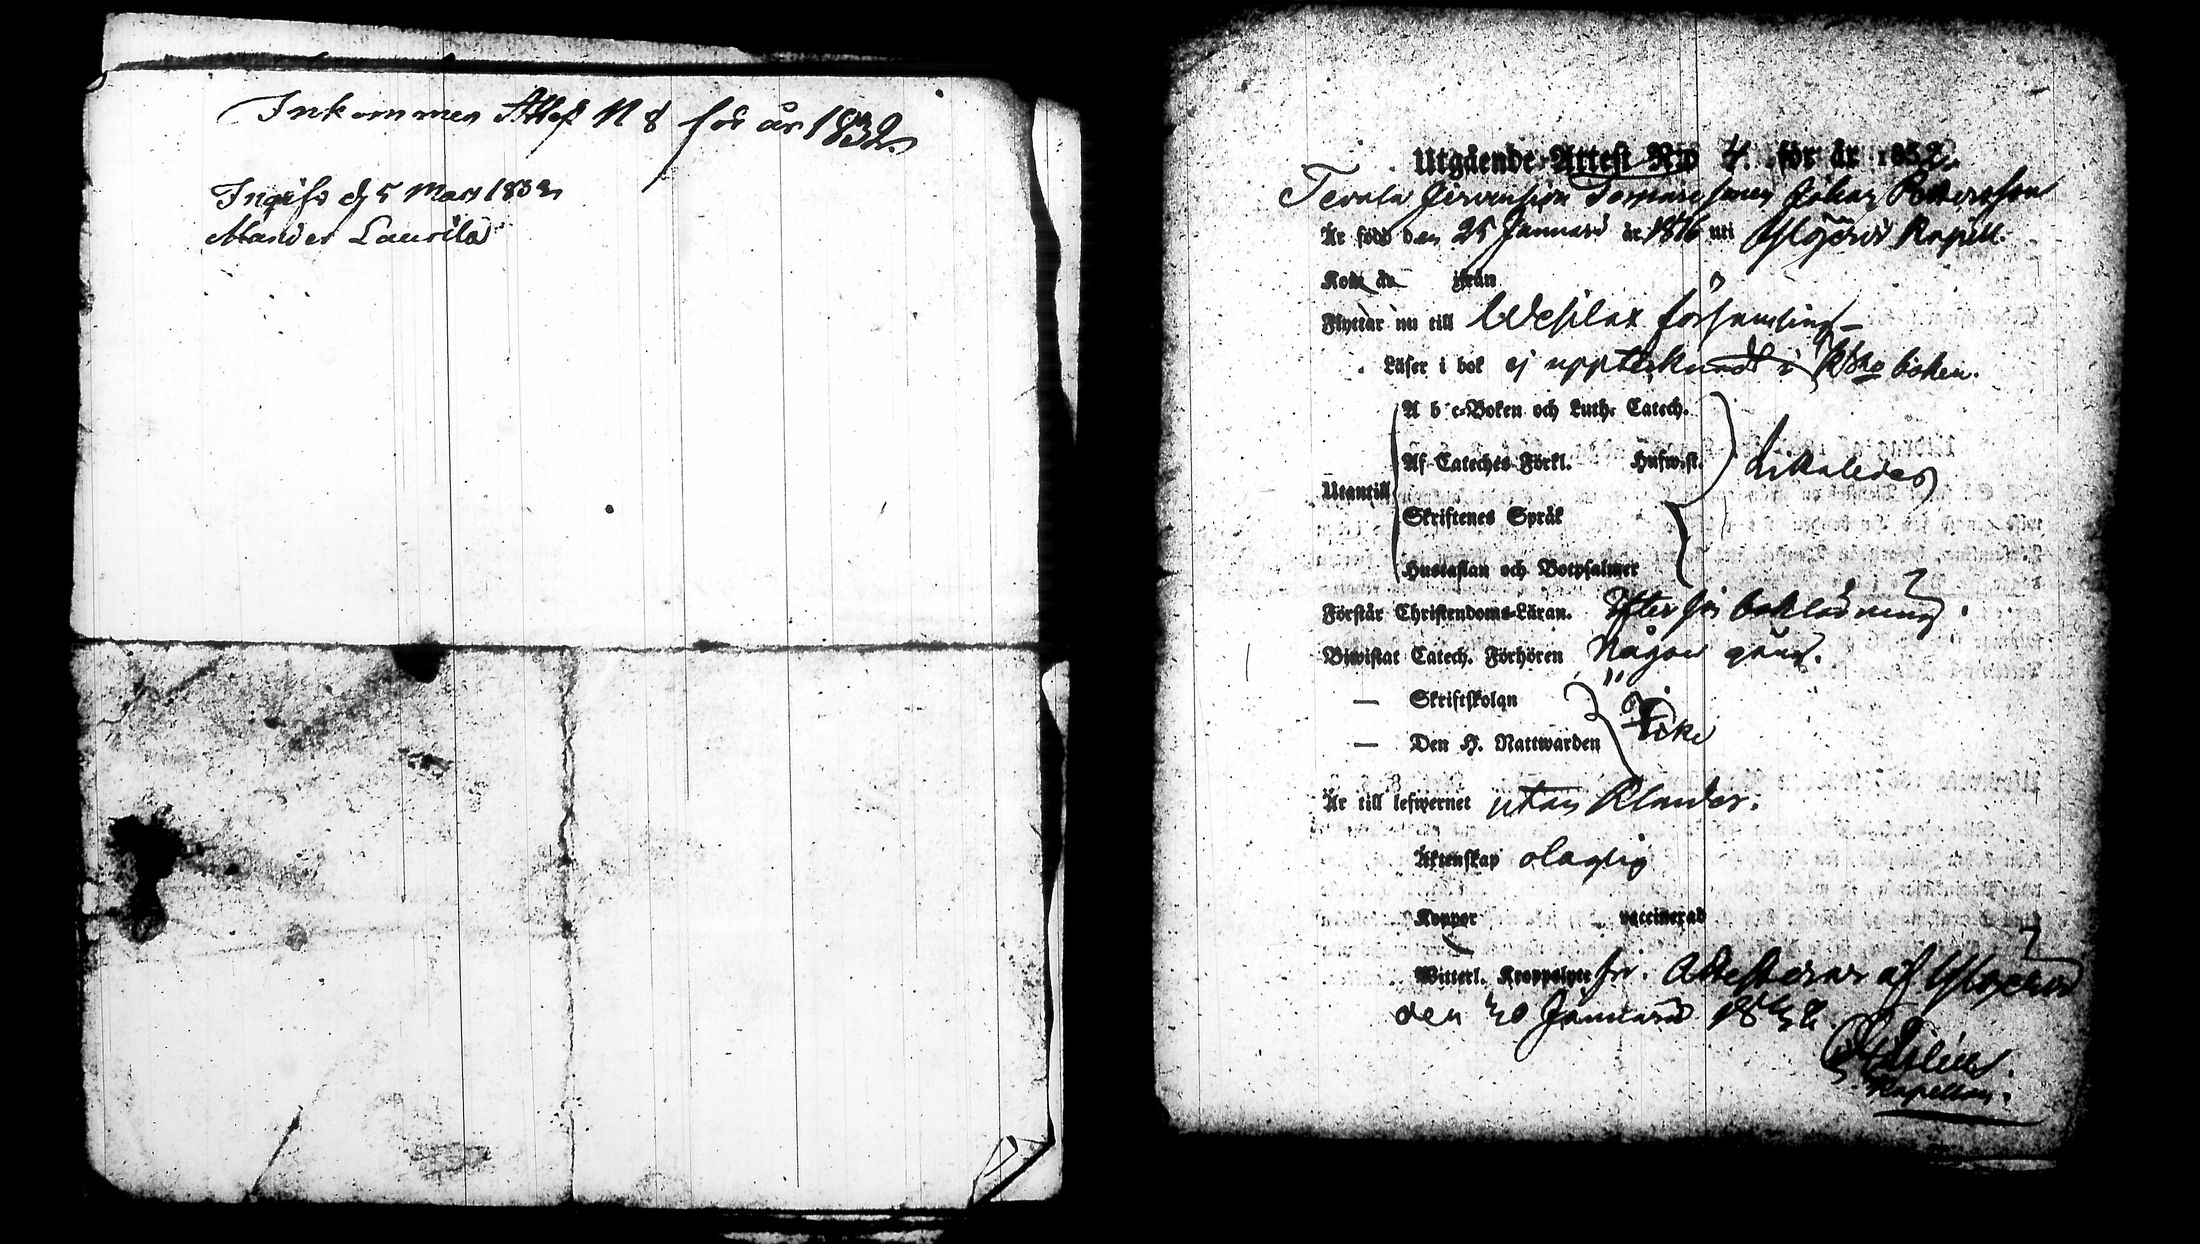 Inkommen Attest N 8 för år 1832.
Ingifs d 5 Mars 1832
Mander Laurila
Utgående Attest N:o 4. för år 1832.
Johan Petersson
Är född den 25 Januari år 1816 uti Ylöjervi Kapell.
Kom år ifrån
Flyttar nu till Wesilax församling
Läser i bok ej upptecknadt i Kyrko boken.
A b c-Boken och Luth. Catech.
Af Cateches Förkl. Huswist. likaledes
Utantill
Skriftenes Språk
Hustaflan och Botpsalmer
Förstår Christendoms-Läran. Efter sin bokläsning.
Biwistat Catech. Förhören Någon gång.
— Skriftskolan
— Den H. Nattwarden Icke
Är till lefwernet utan klander.
Äktenskap olaglig
Koppor vaccinerad
Witterl. Kroppslyte fri. Attesteras af Ylöjervi
den 30 Januari 1832.
Kapellan.